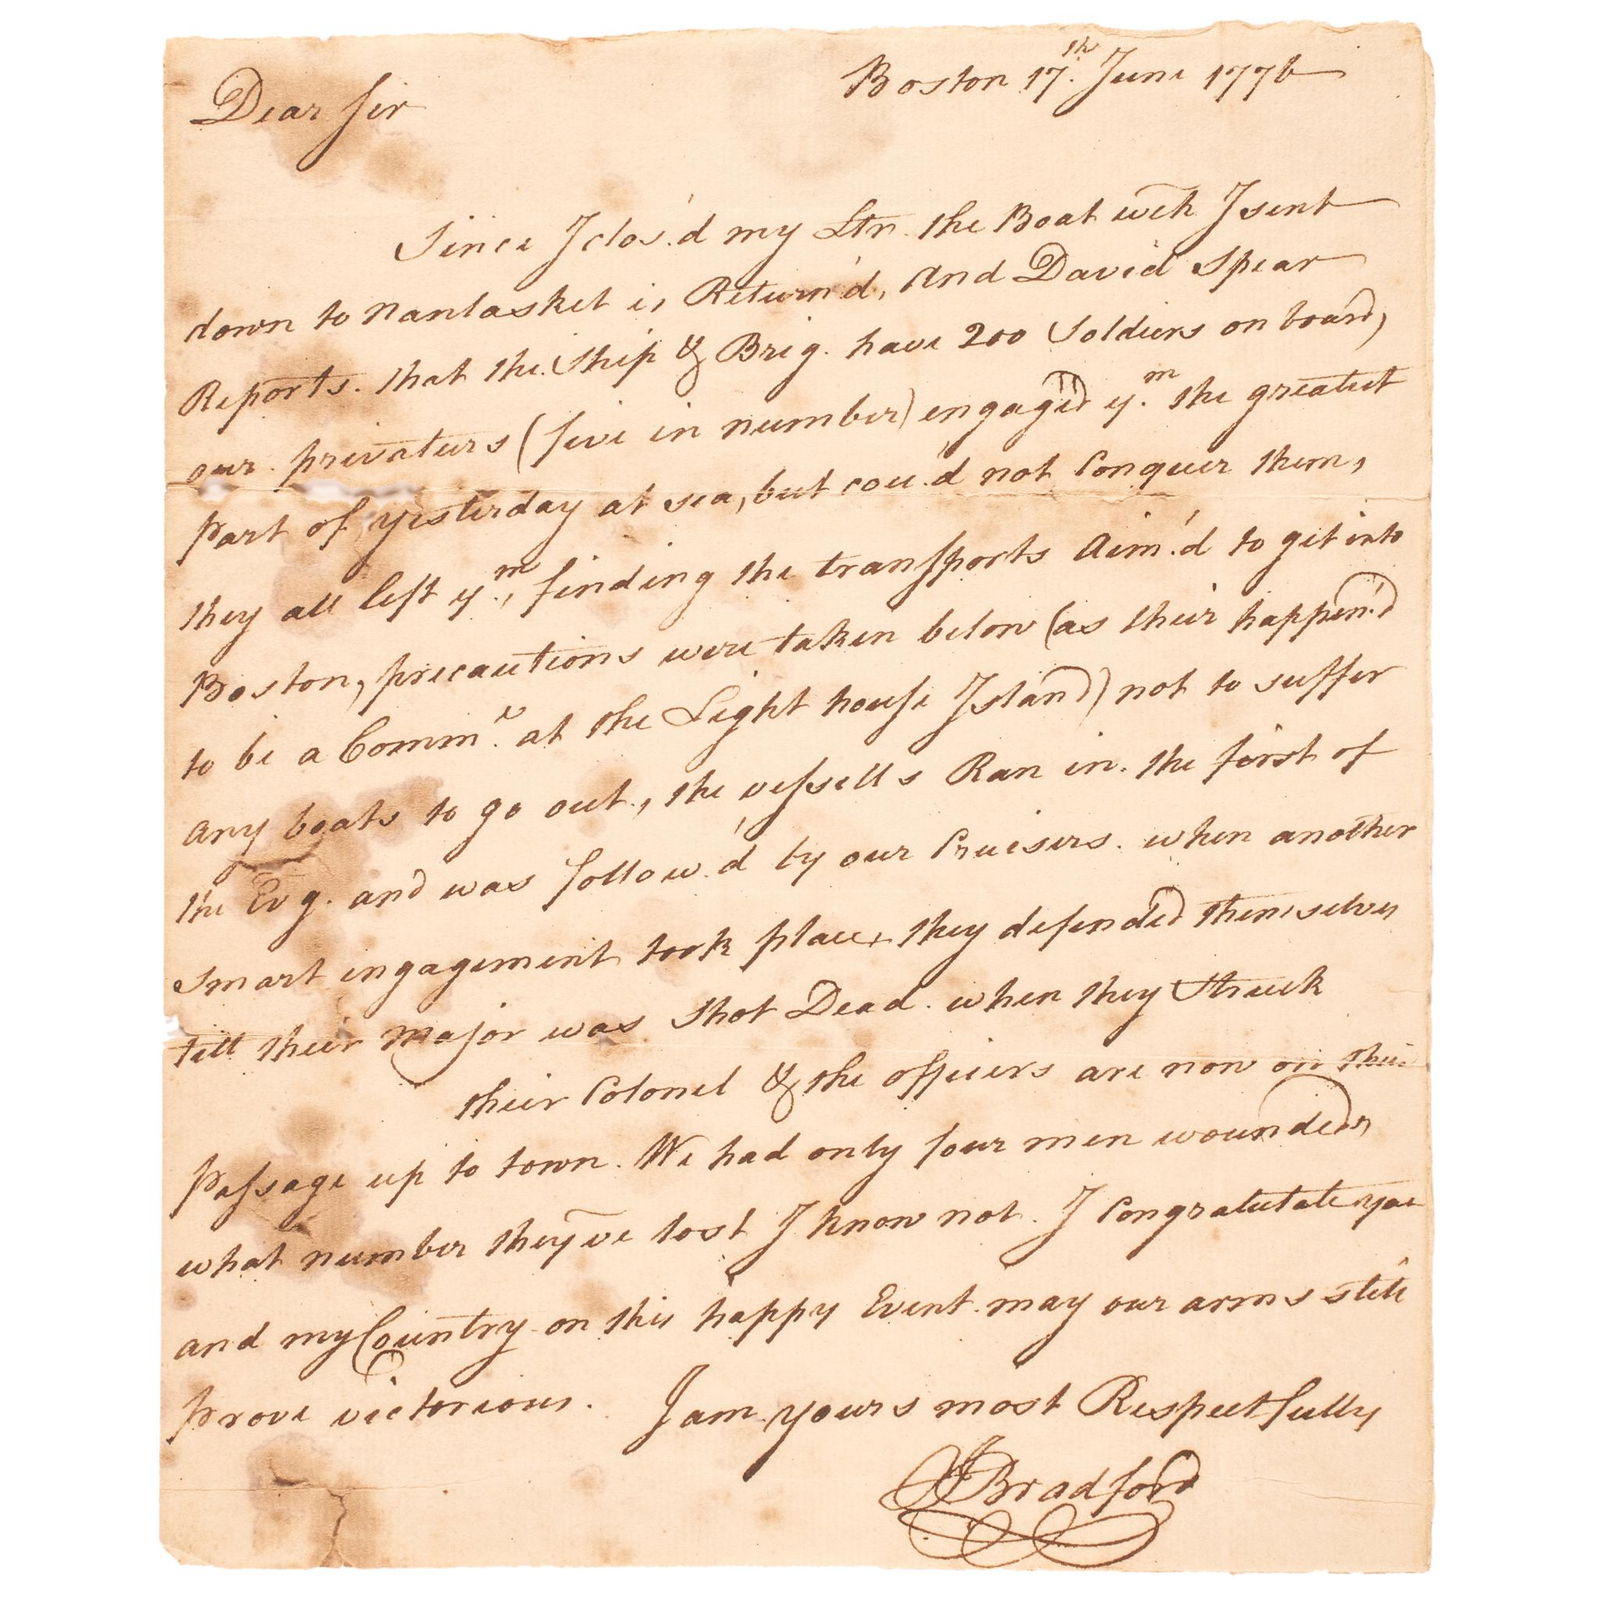 Boston 17.th June 1776
Dear Sir
Since I clos'd my Ltr. the Boat wch I sent
down to Nantasket is Return'd, And David Spear
Reports. that the Ship & Brig. have 200 Soldiers on board,
our privaturs (five in number) engaged y.m the greatest
part of yesterday at sea, but cou'd not Conquer them,
they all left y.m, finding the transports Aim'd to git into
Boston, precautions were taken below (as their happen'd
to be a Comm.e at the Light house Island) not to suffer
any boats to go out, the vessells Ran in. the first of
the Evg. and was follow'd by our Cruisers. when another
smart ingagement took place, they defended themselves
till their Major was Shot Dead. when they Struck
their Colonel & the officers are now on their
passage up to town. We had only four men wounded,
what number they've lost I know not. I Congratulate you
and my Country on this happy Event. may our arms still
prove victorious. I am yours most Respectfully
J Bradford